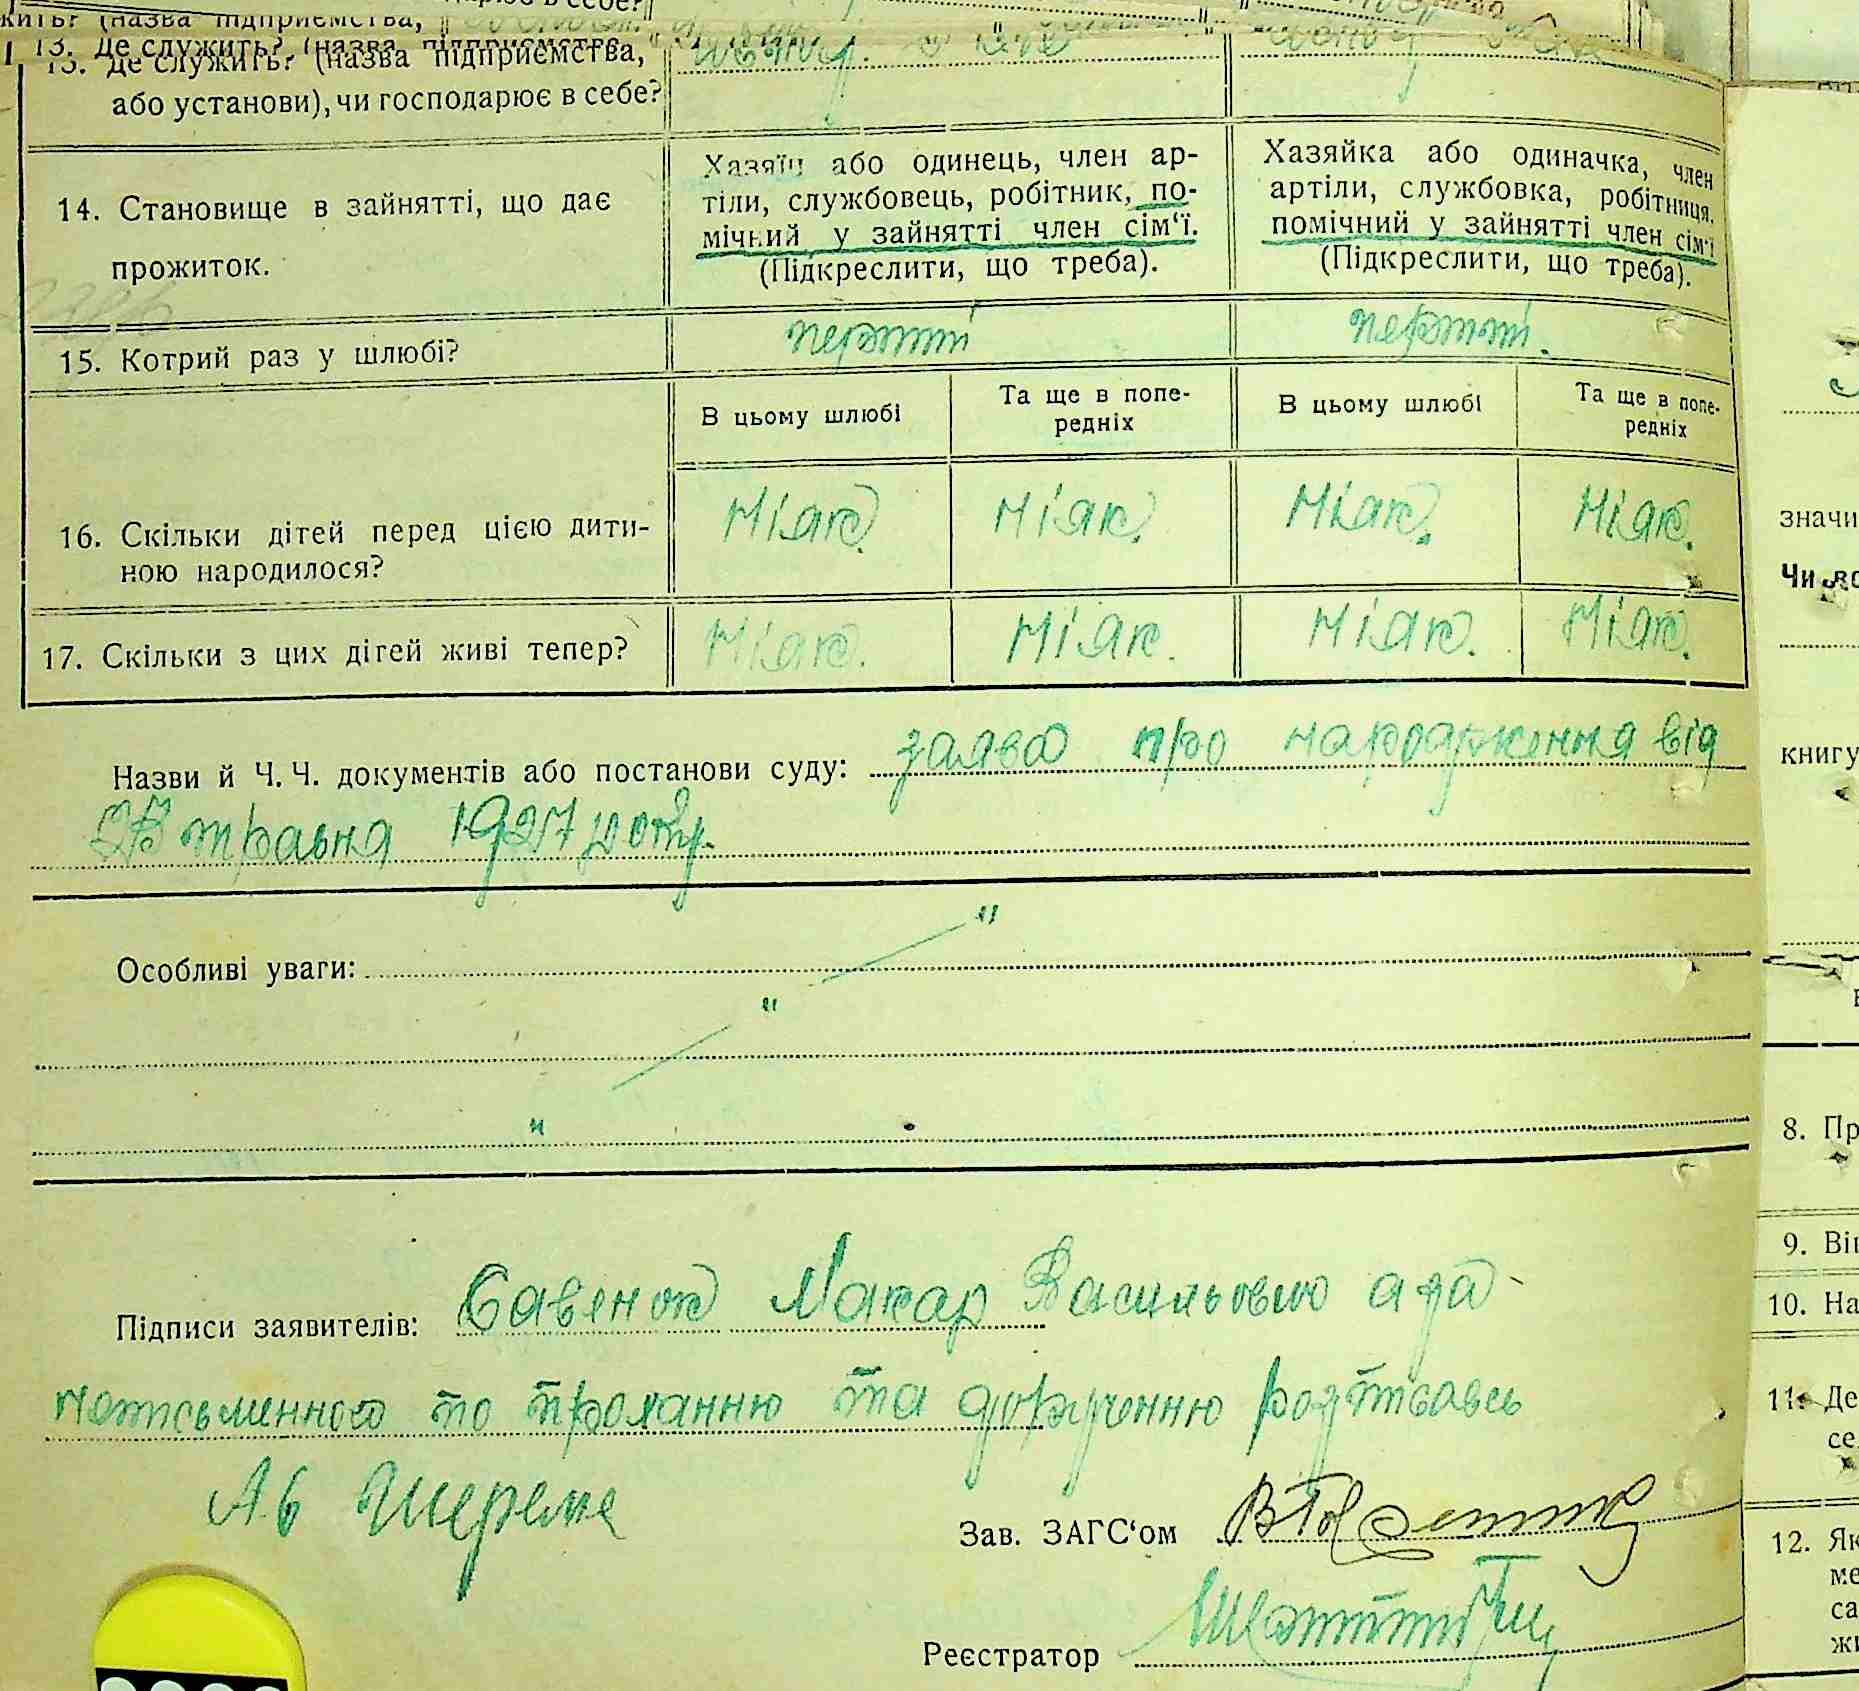 13. Де служить? (назва підприємства,
або установи), чи господарює в себе?
14. Становище в зайнятті, що дає
прожиток.
Хазяїн або одинець, член ар-
тіли, службовець, робітник, по-
мічний у зайнятті член сім‘ї.
(Підкреслити, що треба).
Хазяйка або одиначка, член
артіли, службовка, робітниця,
помічний у зайнятті член сім‘ї
(Підкреслити, що треба).
15. Котрий раз у шлюбі?
перший
перший.
В цьому шлюбі
Та ще в попе-
редніх
В цьому шлюбі
Та ще в попе-
редніх
16. Скільки дітей перед цією дити-
ною народилося?
Ніяк.
Ніяк.
Ніяк.
Ніяк.
17. Скільки з цих дітей живі тепер?
Ніяк.
Ніяк.
Ніяк.
Ніяк.
Назви й Ч.Ч. документів або постанови суду: заява про народження від
травня 1927 року.
Особливі уваги:
Підписи заявителів: Савенок Макар Васильович а за
неписьменного по проханню та дорученню розписавсь
Зав. ЗАГС‘ом
Реєстратор
значи
книгу
8. Пр
9. Ві
10. На
11. Де
се
12. Як
ме
са
жи